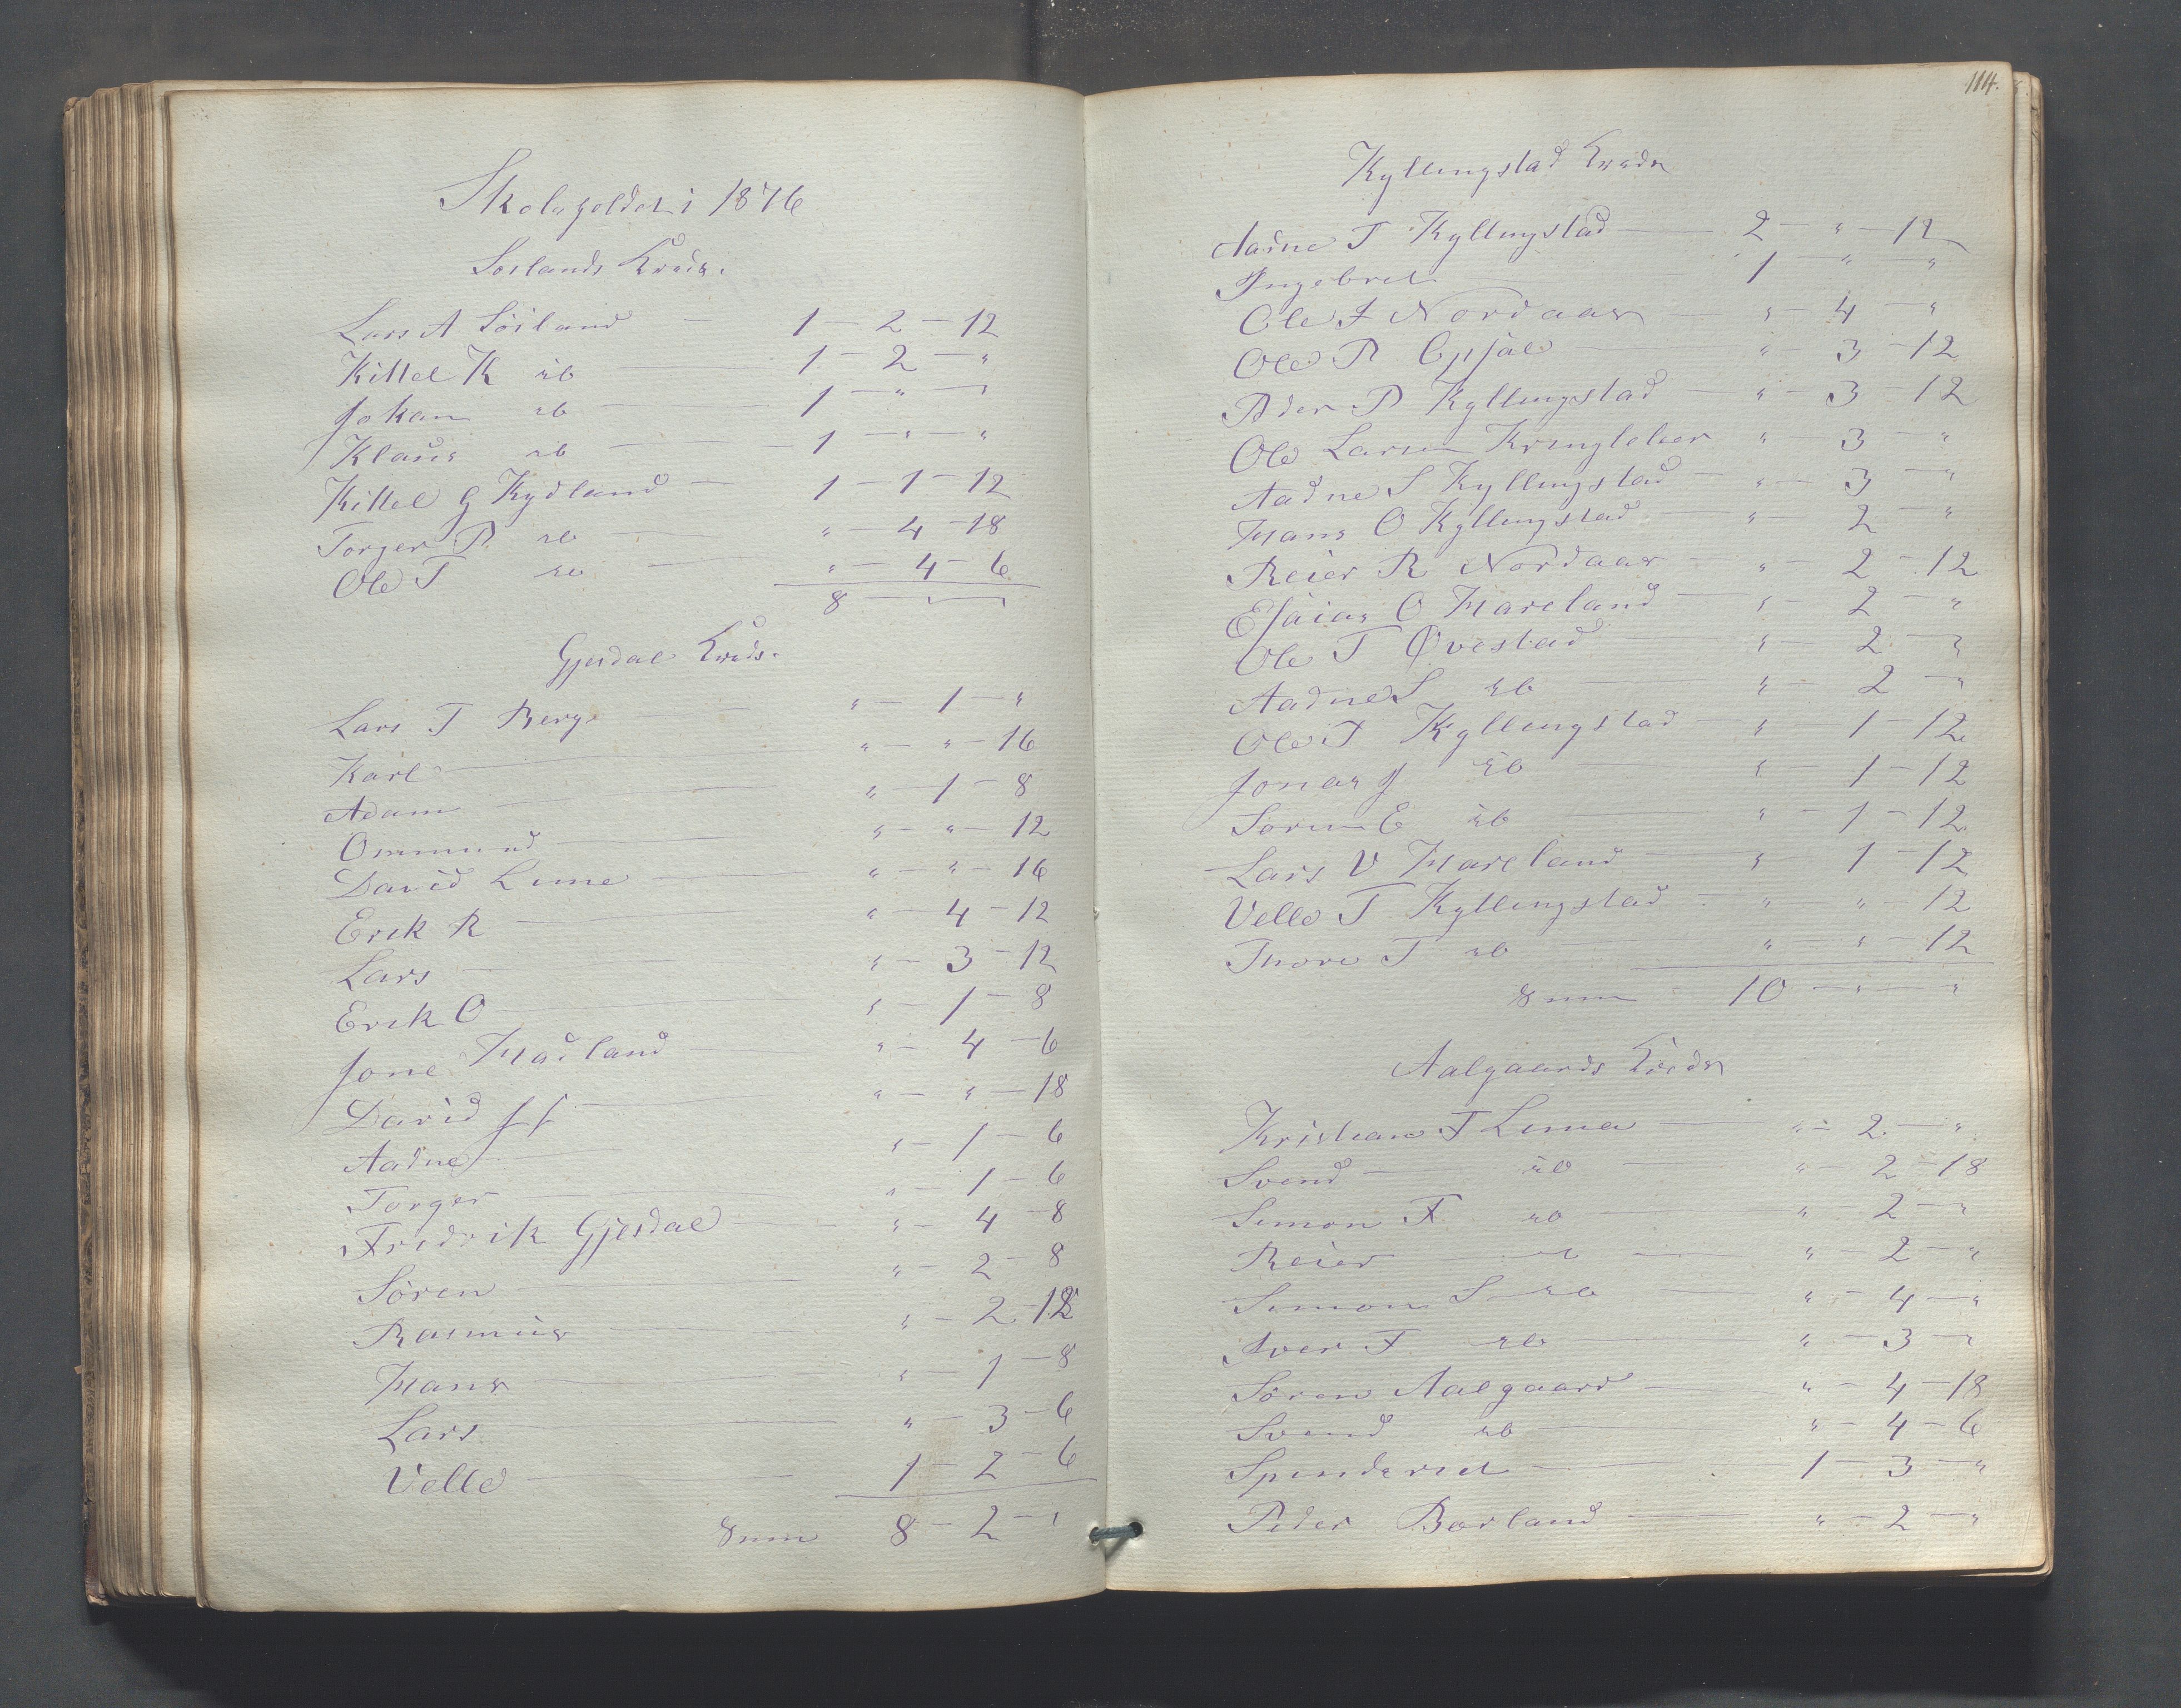 Skolegoldet i 1876
Soilands Kreds.
Lars A. Söiland — 1 — 2 — 12
Kittel K do — 1 — 2 — "
Johan do — 1 — " — "
Klaus do — 1 — " — "
Kittel G Kydland — 1 — 1 — 12
Torger P. do — " — 4 — 18
Ole T do — " — 4 — 6
8 — " — "
Gjesdal Kreds.
Lars T Berge — " — 1 — "
Karl — " — " — 16
Adam — " — 1 — 8
Ommund — " — " — 12
David Lime — " — " — 16
Erik R — " — 4 — 12
Lars — " — 3 — 12
Erik O — " — 1 — 8
Jone Madland — " — 4 — 6
David J — " — " — 18
Aadne — " — 1 — 6
Torger — " — 1 — 6
Fredrik Gjesdal — " — 4 — 8
Sören — " — 2 — 8
Rasmus — " — 2 — 12
Hans — " — 1 — 8
Lars — " — 3 — 6
Velle — 1 — 2 — 6
Sum 8 — 2 — "
114.
Kyllingstad Kreds
Aadne T Kyllingstad — 2 — " — 12
Ingebret — 1 — " — "
Ole T Nordaas — " — 4 — "
Ole P — " — 3 — 12
Peder P Kyllingstad — " — 3 — 12
Ole Larsen Kringleber " — 3 — "
Aadne S Kyllingstad — " — 3 — "
Hans O Kyllingstad — " — 2 — "
Reier R Nordaas — " — 2 — 12
Esaias O Hareland — " — 2 — "
Ole T Øvestad — " — 2 — "
Aadne S do — " — 2 — "
Ole T Kyllingstad — " — 1 — 12
Jonas J do — " — 1 — 12
Soren E do — " — 1 — 12
Lars V Hareland — " — 1 — 12
Velle T Kyllingstad — " — " — 12
Thore T do — " — " — 12
Sum 10 — " — "
Aalgaards Kreds
Kristian T Lima — " — 2 — "
Svend — do — " — 2 — 18
Simon T do — " — 2 — "
Reier — do — " — 2 — "
Simon S do — " — 4 — "
Iver T do — " — 3 — "
Sören Aalgaard — " — 4 — 18
Svend do — " — 4 — 6
Spinderiet — 1 — 3 — "
Peder Borland — " — 2 — "